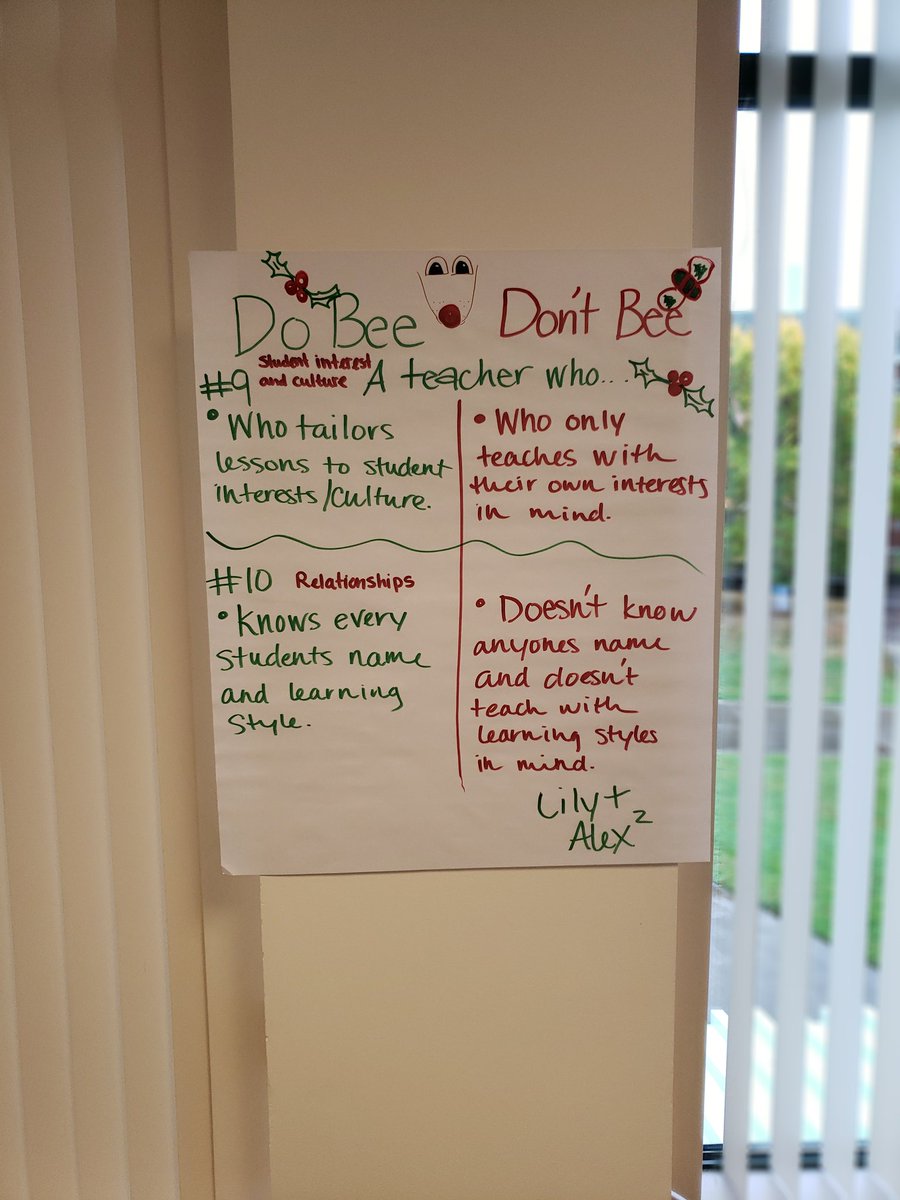 Do Bee
Don't Bee
#9 Student interest and culture A teacher who...
• Who tailors
lessons to student
interests/culture.
• Who only
teaches with
their own interests
in mind.
#10 Relationships
• Knows every
students name
and learning
style.
• Doesn't know
anyones name
and doesn't
teach with
learning styles
in mind.
Lily +
Alex 2